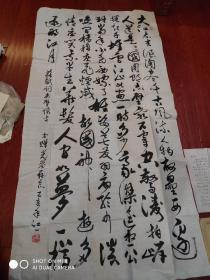 大江东去浪淘尽千古风流人物故垒西边
人道是三國周郎赤壁乱石穿空驚涛拍岸
捲起千堆雪江山如画一時多少豪杰遥想公
瑾当年小乔初嫁了雄姿英发羽扇纶巾谈
笑间樯橹灰飞烟灭故國神游多
情应笑我早生华髮人生如夢一尊
还酹江月 蘇轼词赤壁怀古